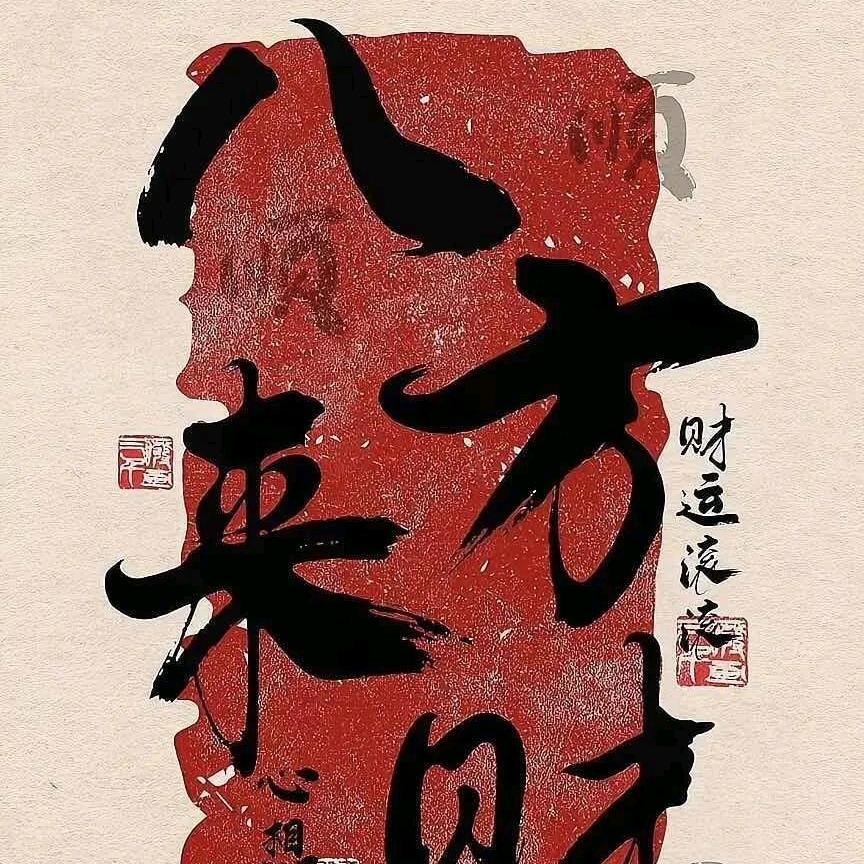 八方来财
顺
顺
财运滚滚
心相